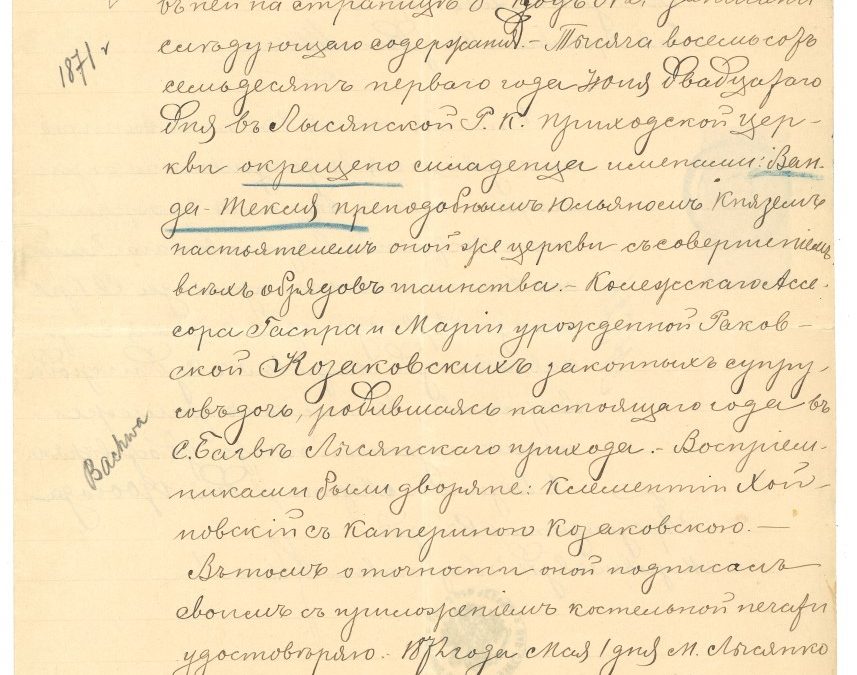 въ ней на страницѣ
слѣдующаго содержанія. – Тысяча восемьсотъ
1871 г
семьдесятъ перваго года Іюня двадцатаго
дня въ Лысянской Р. К. приходской цер-
кви окрещено младенца именами: Ван-
да-Текля преподобнымъ Юльяномъ Княземъ
настоятелемъ оной же церкви съ совершеніемъ
всѣхъ обрядовъ таинства. – Колежскаго Ассе-
сора Гаспра и Маріи урожденной Раков-
ской Козаковскихъ законныхъ супру-
говъ дочь, родившаяся настоящаго года въ
С. Багвѣ Лысянскаго прихода. – Воспріем-
Bachwa
никами были дворяне: Клементій Хой-
новскій съ Катериною Козаковскою. —
Въ томъ о точности оной подписомъ
своимъ съ приложеніемъ костельной печати
удостовѣряю. – 1872 года Мая 1 дня М. Лысянко